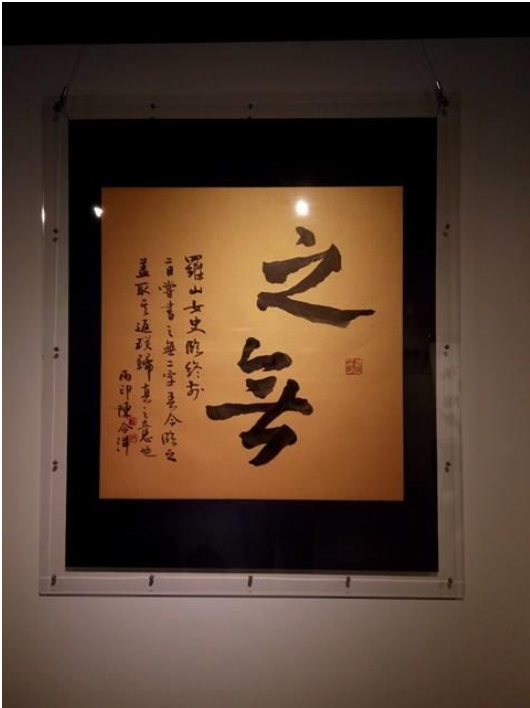 之無
羅山女史臨終前
二日嘗書之無二字吾今臨之
蓋取其返璞歸真之意也
丙申陳